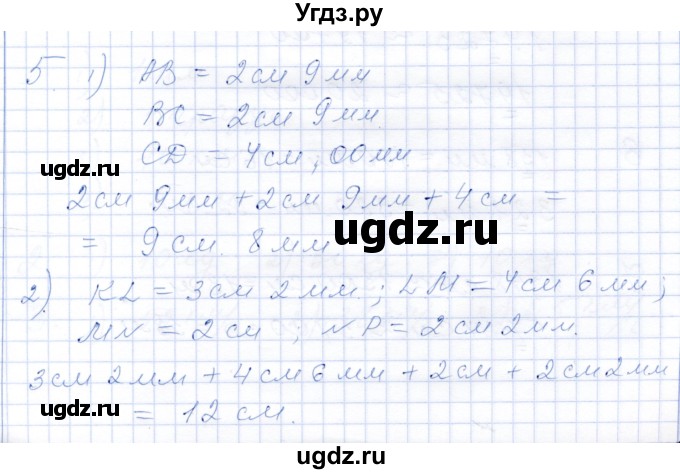 Угдз.ру
5. 1) AB = 2 см 9 мм
BC = 2 см 9 мм.
CD = 4 см, 00 мм.
ugdz.ru
2 см 9 мм + 2 см 9 мм + 4 см =
ugdz.ru
= 9 см. 8 мм.
2) KL = 3 см 2 мм; LM = 4 см 6 мм;
MN = 2 см ; NP = 2 см 2 мм.
3 см 2 мм + 4 см 6 мм + 2 см + 2 см 2 мм
ugdz.ru
= 12 см.
ugdz.ru